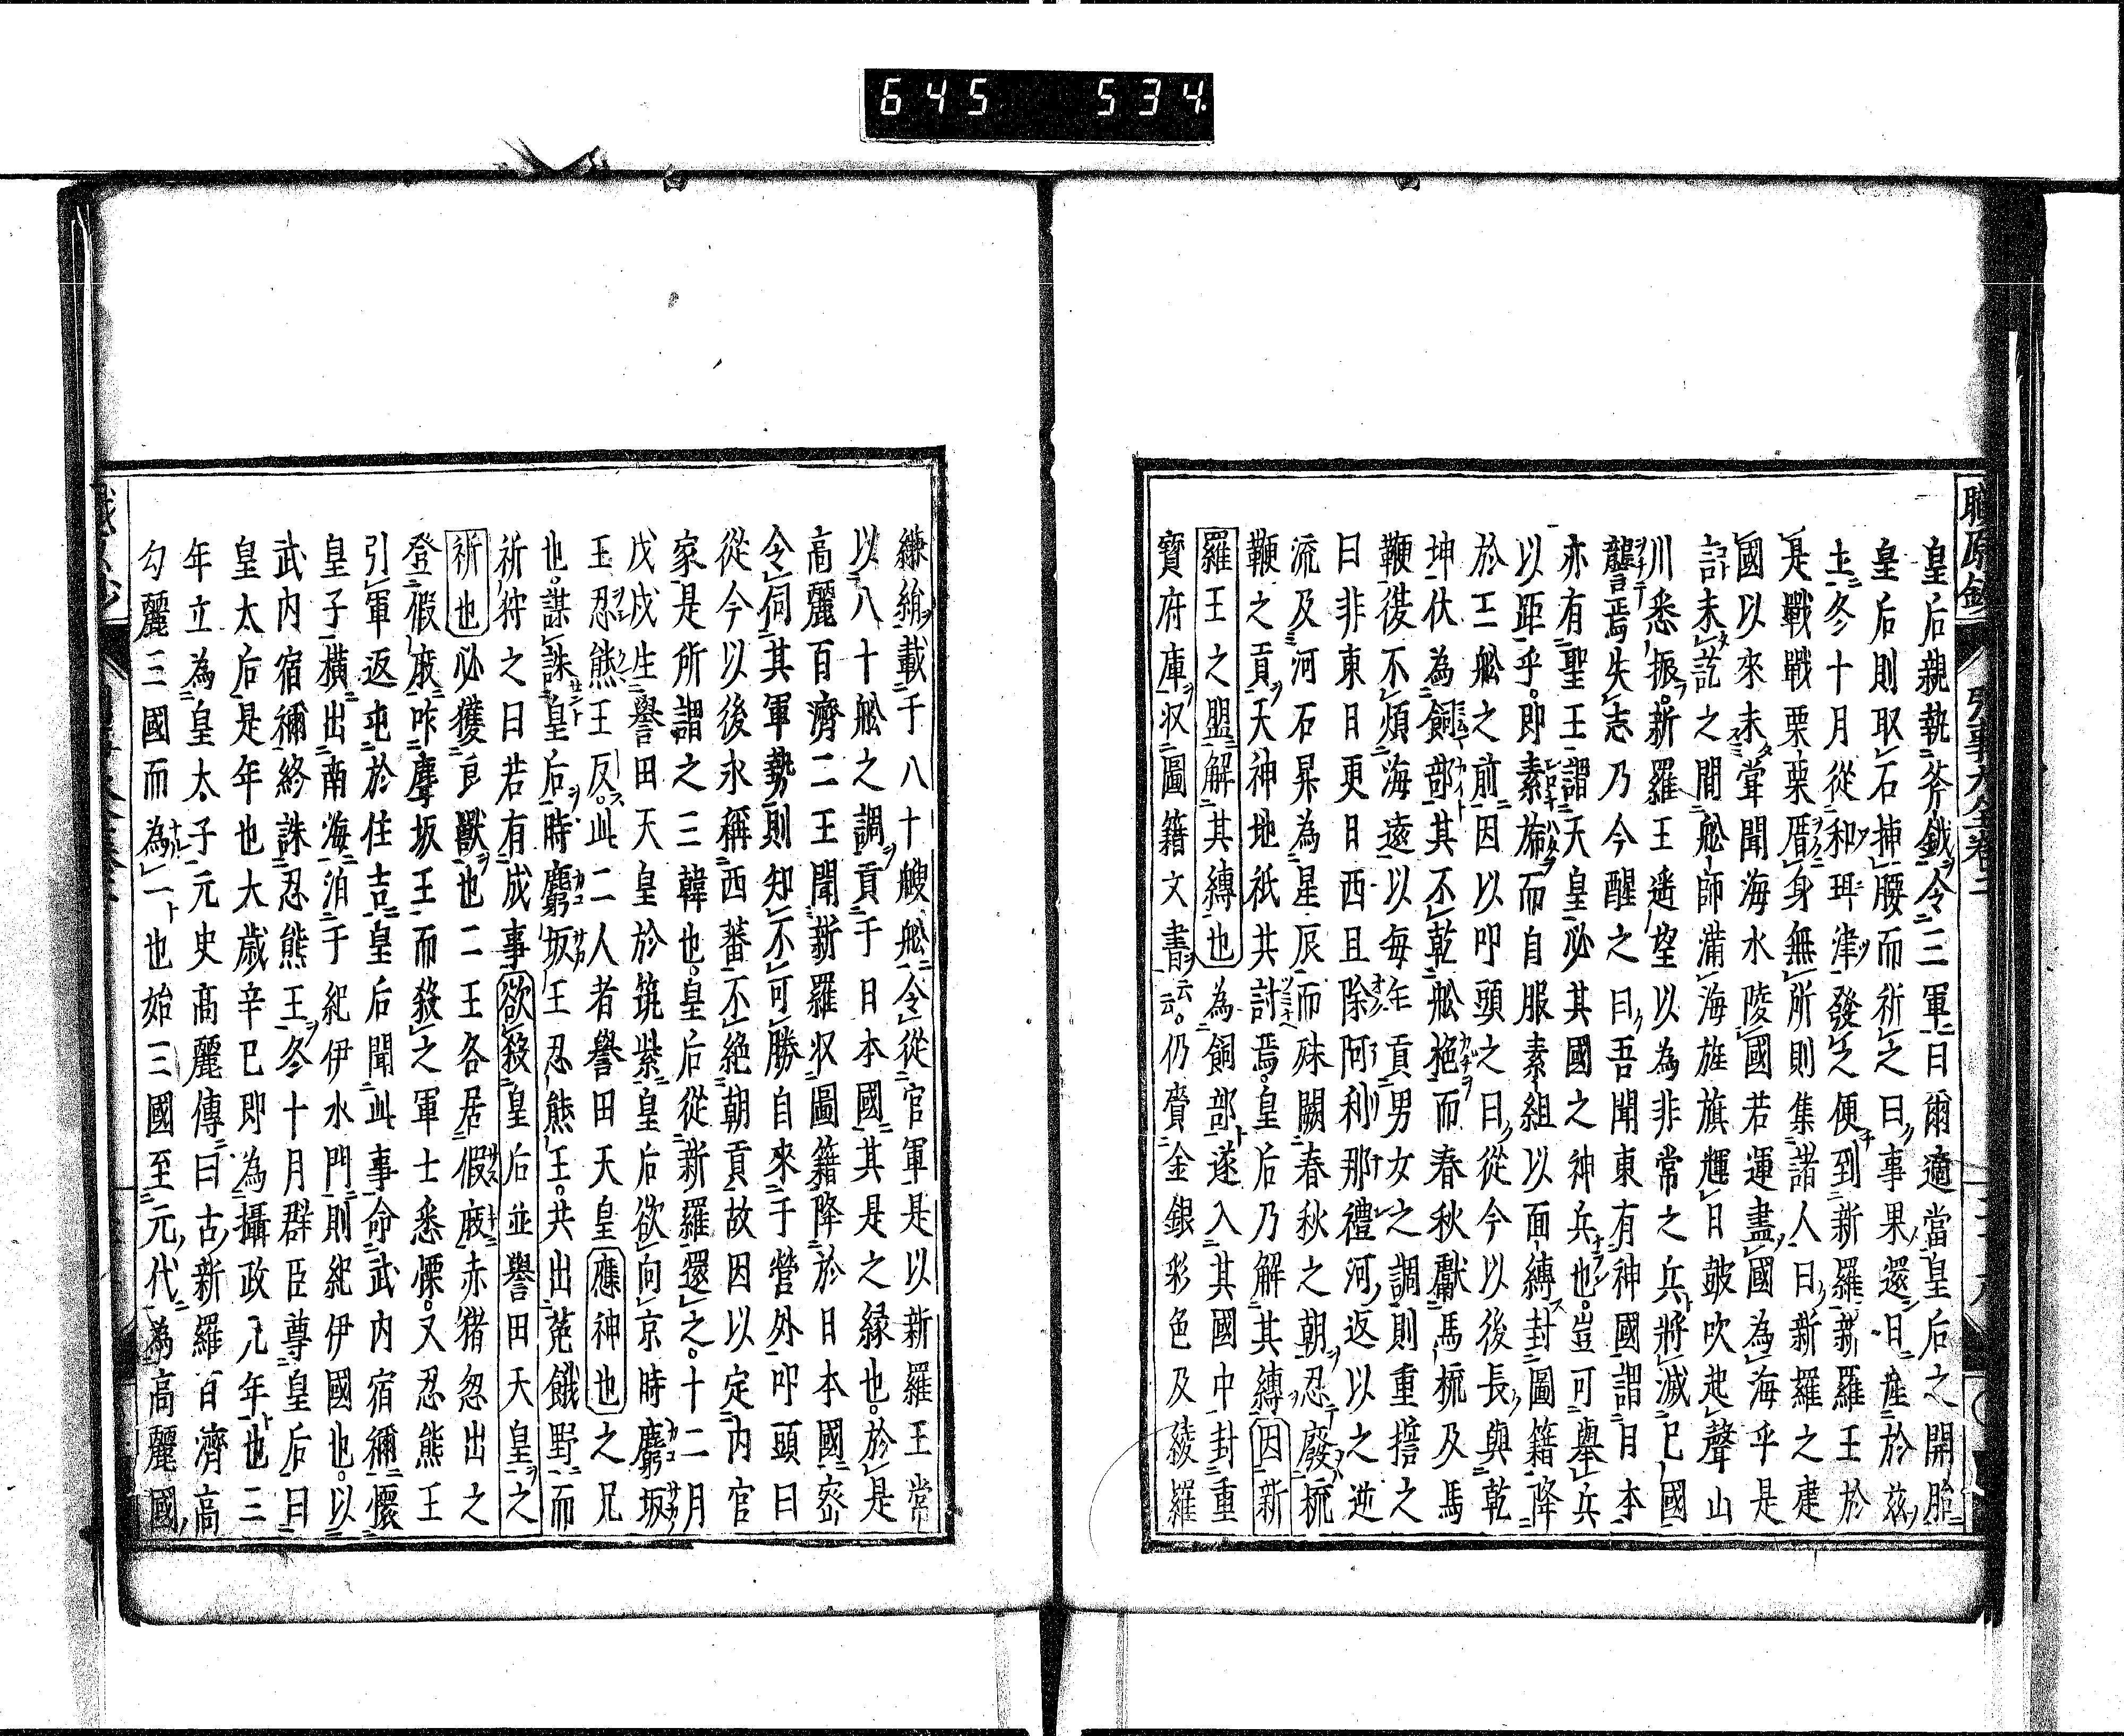 645 534.
皇后親執斧鉞令三軍曰爾適當皇后之開胎
皇后則取石挿腰而祈之曰事果還日產於茲
土冬十月從和珥津發之便到新羅新羅王於
是戰戰栗栗厝身無所則集諸人曰新羅之建
國以來未甞聞海水陵國若運盡國為海乎是
言未訖之間舩師滿海旌旗輝日皷吹起聲山
川悉振新羅王遥望以為非常之兵將滅已國
讋焉失志乃今醒之曰吾聞東有神國謂日本
亦有聖王謂天皇必其國之神兵也豈可舉兵
以距乎即素旆而自服素組以面縛封圖籍降
於王舩之前因以叩頭之曰從今以後長與乾
坤伏為飼部其不乾舩柂而春秋獻馬梳及馬
鞭復不煩海遠以每年貢男女之調則重誓之
曰非東日更日西且除阿利那禮河返以之逆
流及河石昇為星辰而殊闕春秋之朝忍廢梳
鞭之貢天神地祇共討焉皇后乃解其縛因新
羅王之盟解其縛也為飼部遂入其國中封重
寶府庫収圖籍文書云云仍賷金銀彩色及綾羅
縑絹載于八十艘舩令從官軍是以新羅王常
以八十舩之調貢于日本國其是之緣也於是
高麗百濟二王聞新羅収圖籍降於日本國密
令伺其軍勢則知不可勝自來于營外叩頭曰
從今以後永稱西蕃不絕朝貢故因以定內官
家是所謂之三韓也皇后從新羅還之十二月
戊戌生譽田天皇於筑紫皇后欲向京時麛坂
王忍熊王反此二人者譽田天皇應神也之兄
也謀誅皇后時麛坂王忍熊王共出菟餓野而
祈狩之曰若有成事欲殺皇后並譽田天皇之
祈也必獲良獸也二王各居假庪赤猪忽出之
登假庪咋麛坂王而殺之軍士悉慄又忍熊王
引軍返屯於住吉皇后聞此事命武內宿禰懷
皇子橫出南海泊于紀伊水門則紀伊國也以
武內宿禰終誅忍熊王冬十月群臣尊皇后曰
皇太后是年也大歲辛巳即為攝政元年也三
年立為皇太子元史高麗傳曰古新羅百濟高
勾麗三國而為一也始三國至元代為高麗國